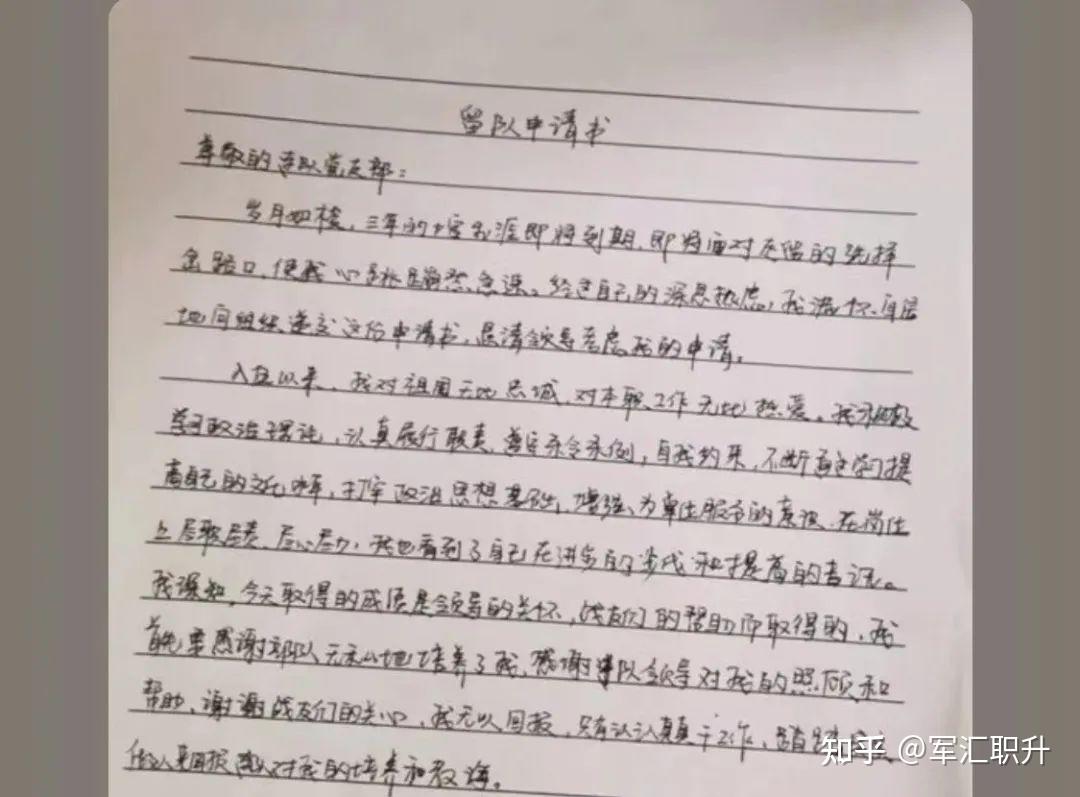 留队申请书
尊敬的连队党支部：
岁月如梭，三年的士官生涯即将到期，即将面对去留的选择
岔路口，使我心跳蹦然急速。经过自己的深思熟虑，我满怀
地向组织递交这份申请书，恳请领导考虑我的申请。
入伍以来，我对祖国无比忠诚，对本职工作无比热爱。我积极
学习政治理论，认真履行职责，遵守条令条例，自我约束，不断学习提
高自己的文化水平，打牢政治思想基础，增强为单位服务的意识，在岗位
上尽职尽责、尽心尽力，我也看到了自己在进步的步伐和提高的音讯。
我深知，今天取得的成质是领导的关怀，战友们的帮助而取得的，我
首先要感谢部队无私地培养了我，感谢部队领导对我的照顾和
帮助，谢谢战友们的关心，我无以回报，只有认认真真干工作，
做以来回报部队对我的培养和教诲。
知乎 @军汇职升